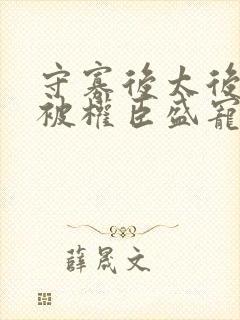 守寡後太後
被權臣盛寵
薛晟文